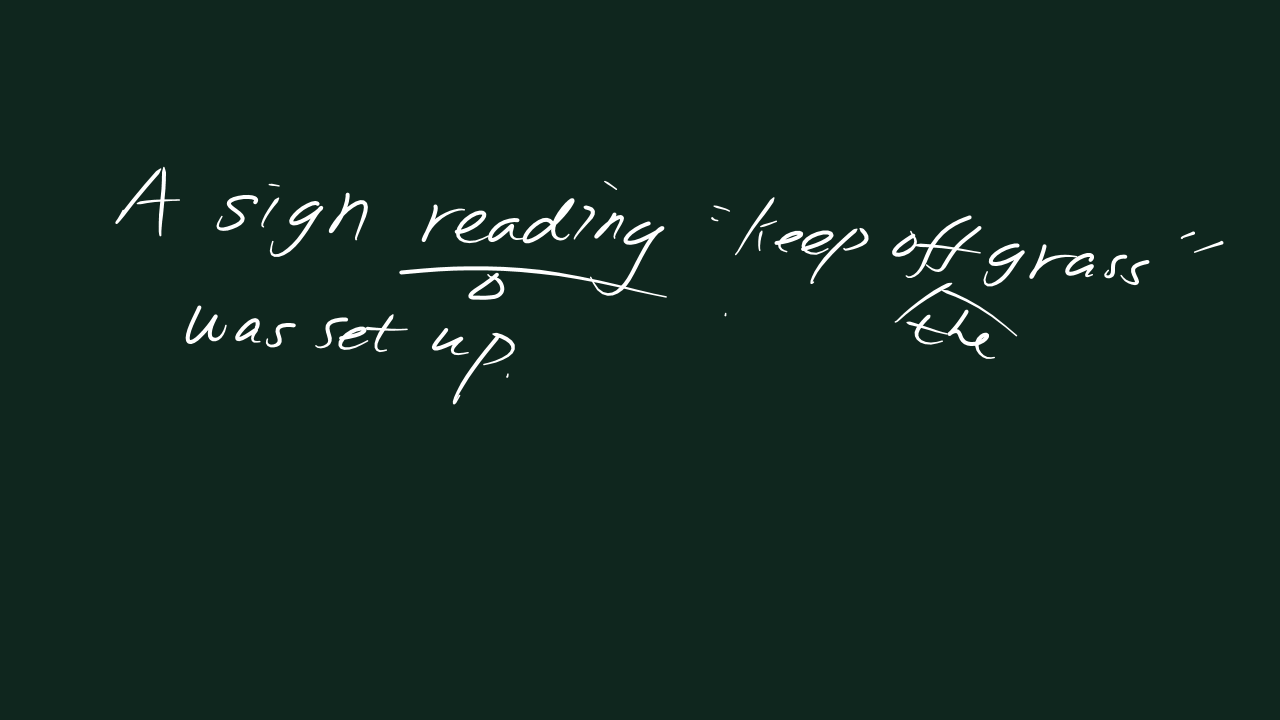 A sign reading "keep off grass"
the
was set up.